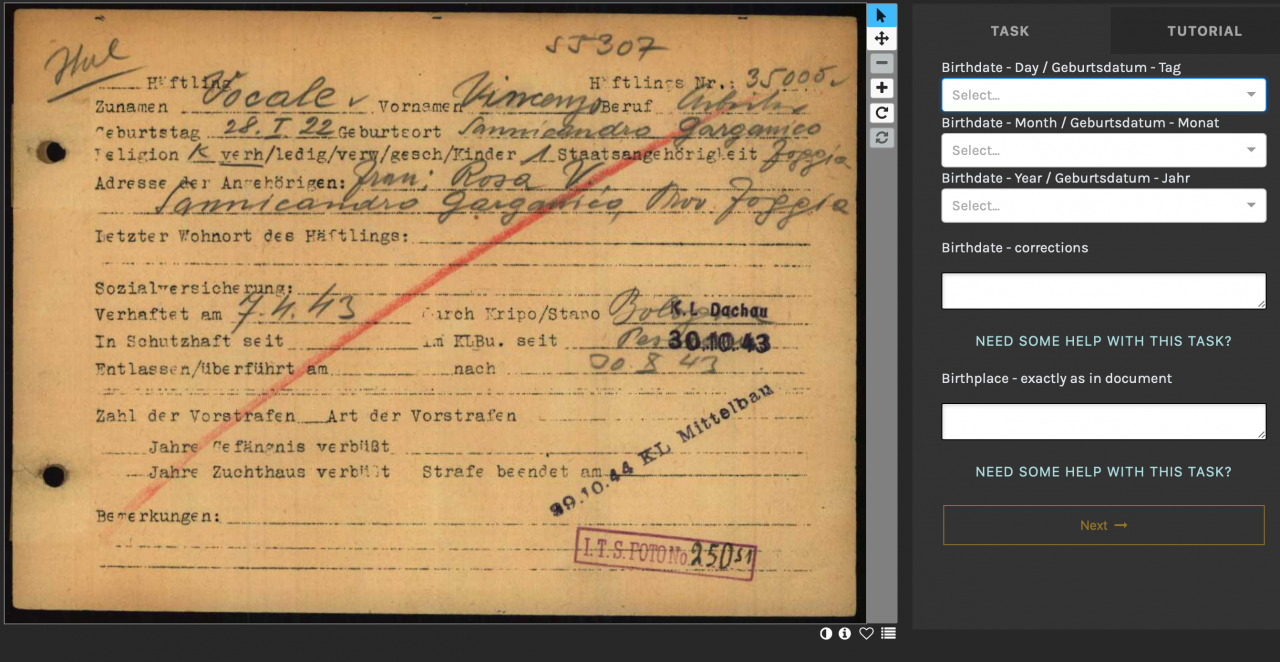 Hul
55307
Häftling
Häftlings Nr.: 35005
Zunamen Vocale Vornamen Vincenzo Beruf Arbeiter
Geburtstag 28. I. 22 Geburtsort Sannicandro Garganico
Religion K verh/ledig/verw/gesch/Kinder 1 Staatsangehörigkeit Foggia
Adresse der Angehörigen: Frau: Rosa V.
Sannicandro Garganico, Prov Foggia
Letzter Wohnort des Häftlings:
Sozialversicherung:
Verhaftet am 7.4.43 durch Kripo/Stapo
K.L. Dachau
In Schutzhaft seit im KLBu. seit
30.10.43
Entlassen/überführt am nach 30 8 43
Zahl der Vorstrafen Art der Vorstrafen
Jahre Gefängnis verbüßt
Jahre Zuchthaus verbüßt Strafe beendet am
29.10.44 KL Mittelbau
Bemerkungen:
I.T.S. FOTO No. 25051
TASK
TUTORIAL
Birthdate - Day / Geburtsdatum - Tag
Select...
Birthdate - Month / Geburtsdatum - Monat
Select...
Birthdate - Year / Geburtsdatum - Jahr
Select...
Birthdate - corrections
NEED SOME HELP WITH THIS TASK?
Birthplace - exactly as in document
NEED SOME HELP WITH THIS TASK?
Next →